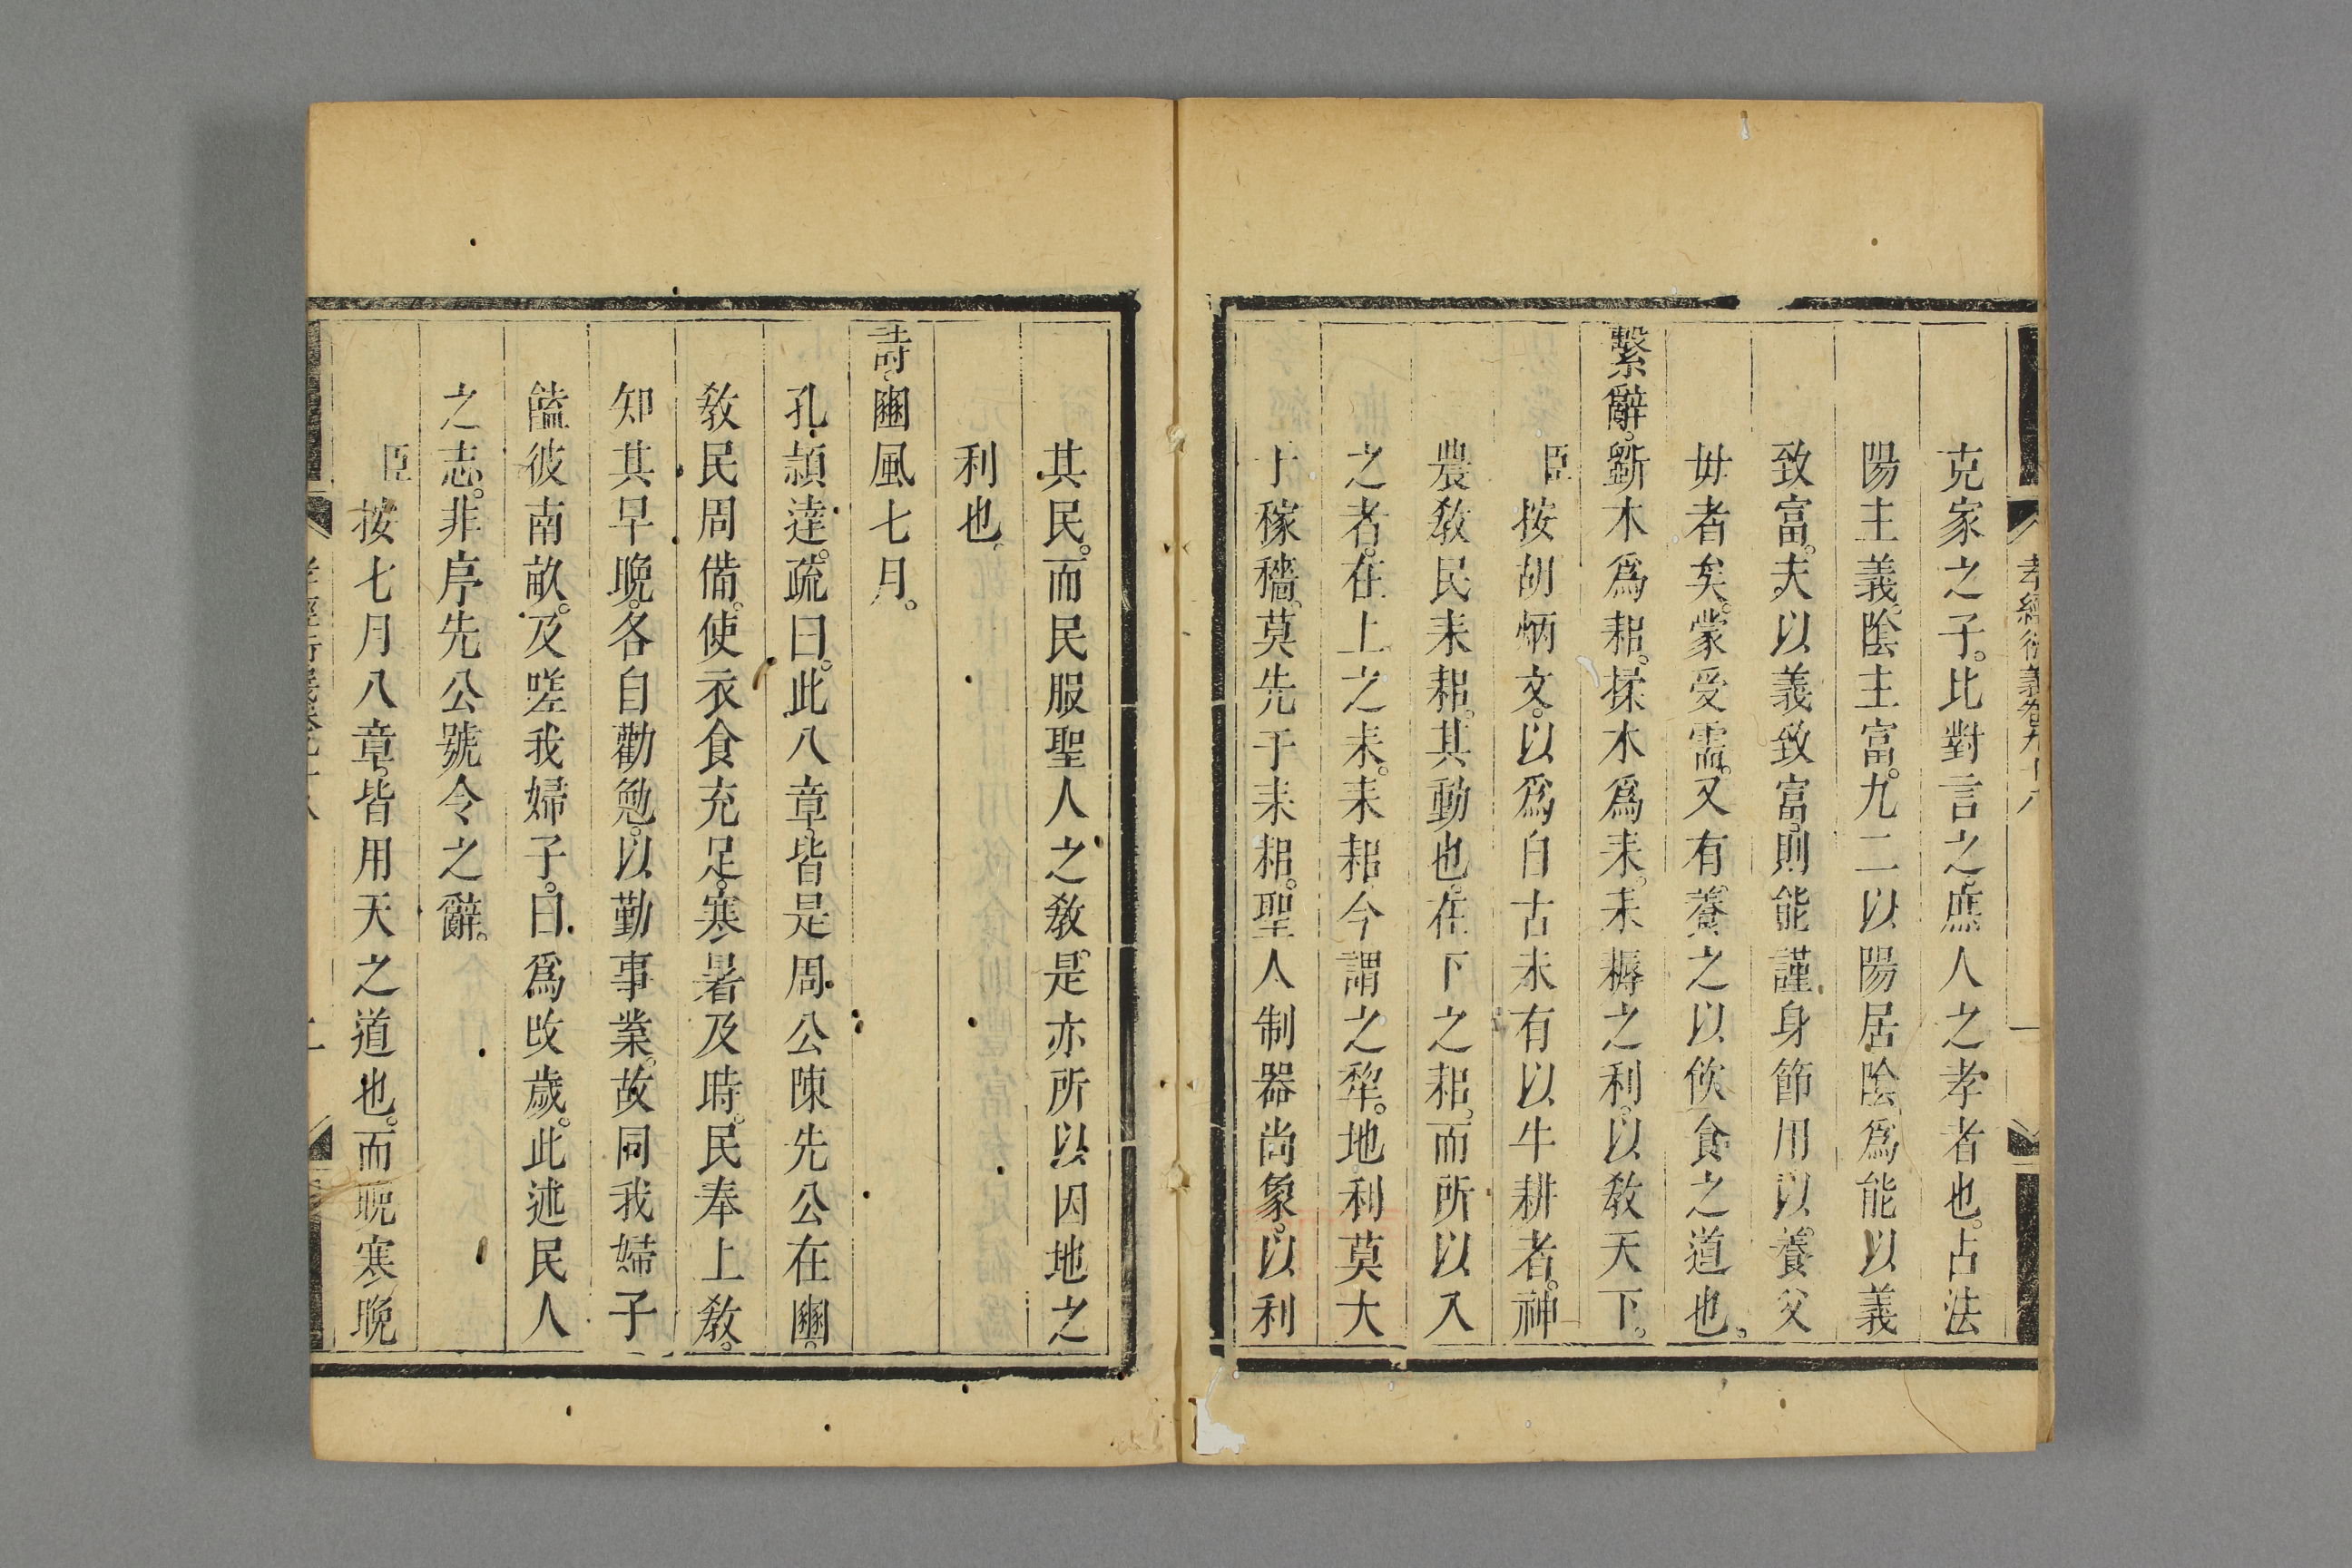 孝經衍義卷九十八
一
克家之子。比對言之。庶人之孝者也。占法
陽主義。陰主富。九二以陽居陰爲能以義
致富。夫以義致富。則能謹身節用以養父
母者矣。蒙受需。又有養之以飲食之道也。
繫辭。斵木爲耜。揉木爲耒。耒耨之利。以敎天下。
臣按胡炳文。以爲自古未有以牛耕者。神
農敎民耒耜。其動也。在下之耜。而所以入
之者。在上之耒。耒耜今謂之犂。地利莫大
于稼穡。莫先于耒耜。聖人制器尚象。以利
其民。而民服聖人之敎。是亦所以因地之
利也。
詩。豳風七月。
孔頴達。疏曰。此八章。皆是周公陳先公在豳。
敎民周備。使衣食充足。寒暑及時。民奉上敎。
知其早晚。各自勸勉。以勤事業。故同我婦子
饁彼南畝。及嗟我婦子。曰爲改歲。此述民人
之志。非序先公號令之辭。
臣按七月八章。皆用天之道也。而晥寒晚
孝經衍義卷九十八
二